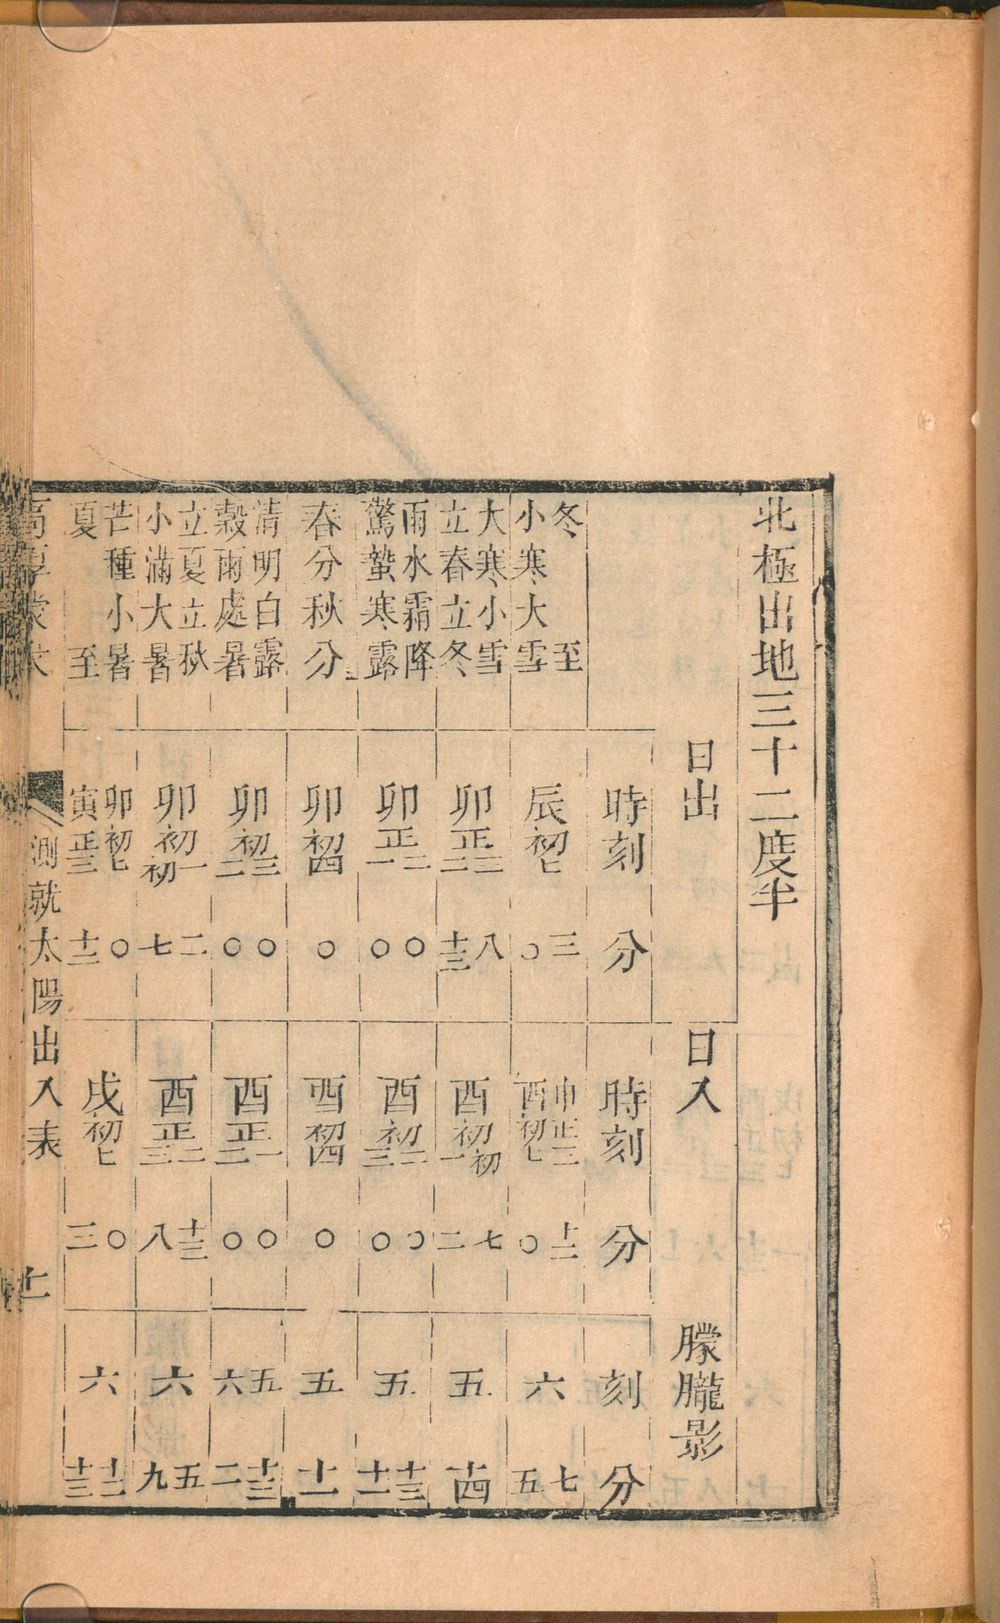 北極出地三十二度半
日出 日入 朦朧影
時刻 分 時刻 分 刻 分
冬至
小寒大雪
辰初七 三 〇
申正三 酉初七 十二 〇
六 七 五
大寒小雪
立春立冬
卯正三二 八 十三
酉初初一 七 二
五 十四
雨水霜降
驚蟄寒露
卯正二一 〇 〇
酉初二三 〇 〇
五 十三 十一
春分秋分
卯初四 〇
酉初四 〇
五 十一
清明白露
穀雨處暑
卯初三二 〇 〇
酉正一二 〇 〇
五 六 十三 二
立夏立秋
小滿大暑
卯初一初 二 七
酉正二三 十三 八
六 五 九
芒種小暑
夏至
卯初七 寅正三 〇 十二
戌初七 〇 三
六 十二 十三
高厚蒙求 測就太陽出入表